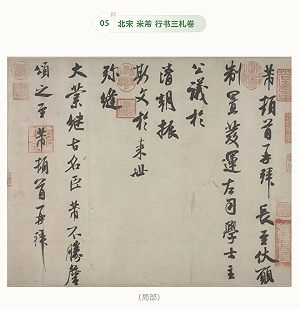 05 北宋 米芾 行书三札卷
芾頓首再拜 長至伏願
制置發運左司學士主
公議於
清朝振
斯文於来世
弥縫
大業継古名臣 芾不勝馨
頌之至 芾頓首再拜
(局部)